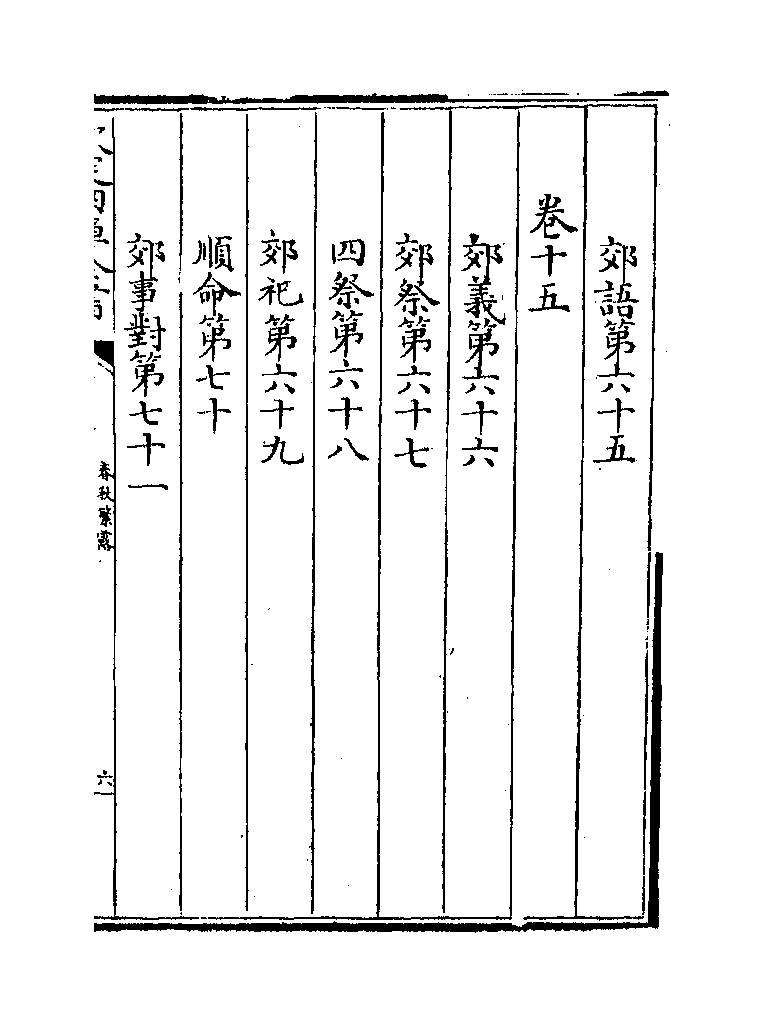 郊語第六十五
卷十五
郊義第六十六
郊祭第六十七
四祭第六十八
郊祀第六十九
順命第七十
郊事對第七十一
春秋繁露
六